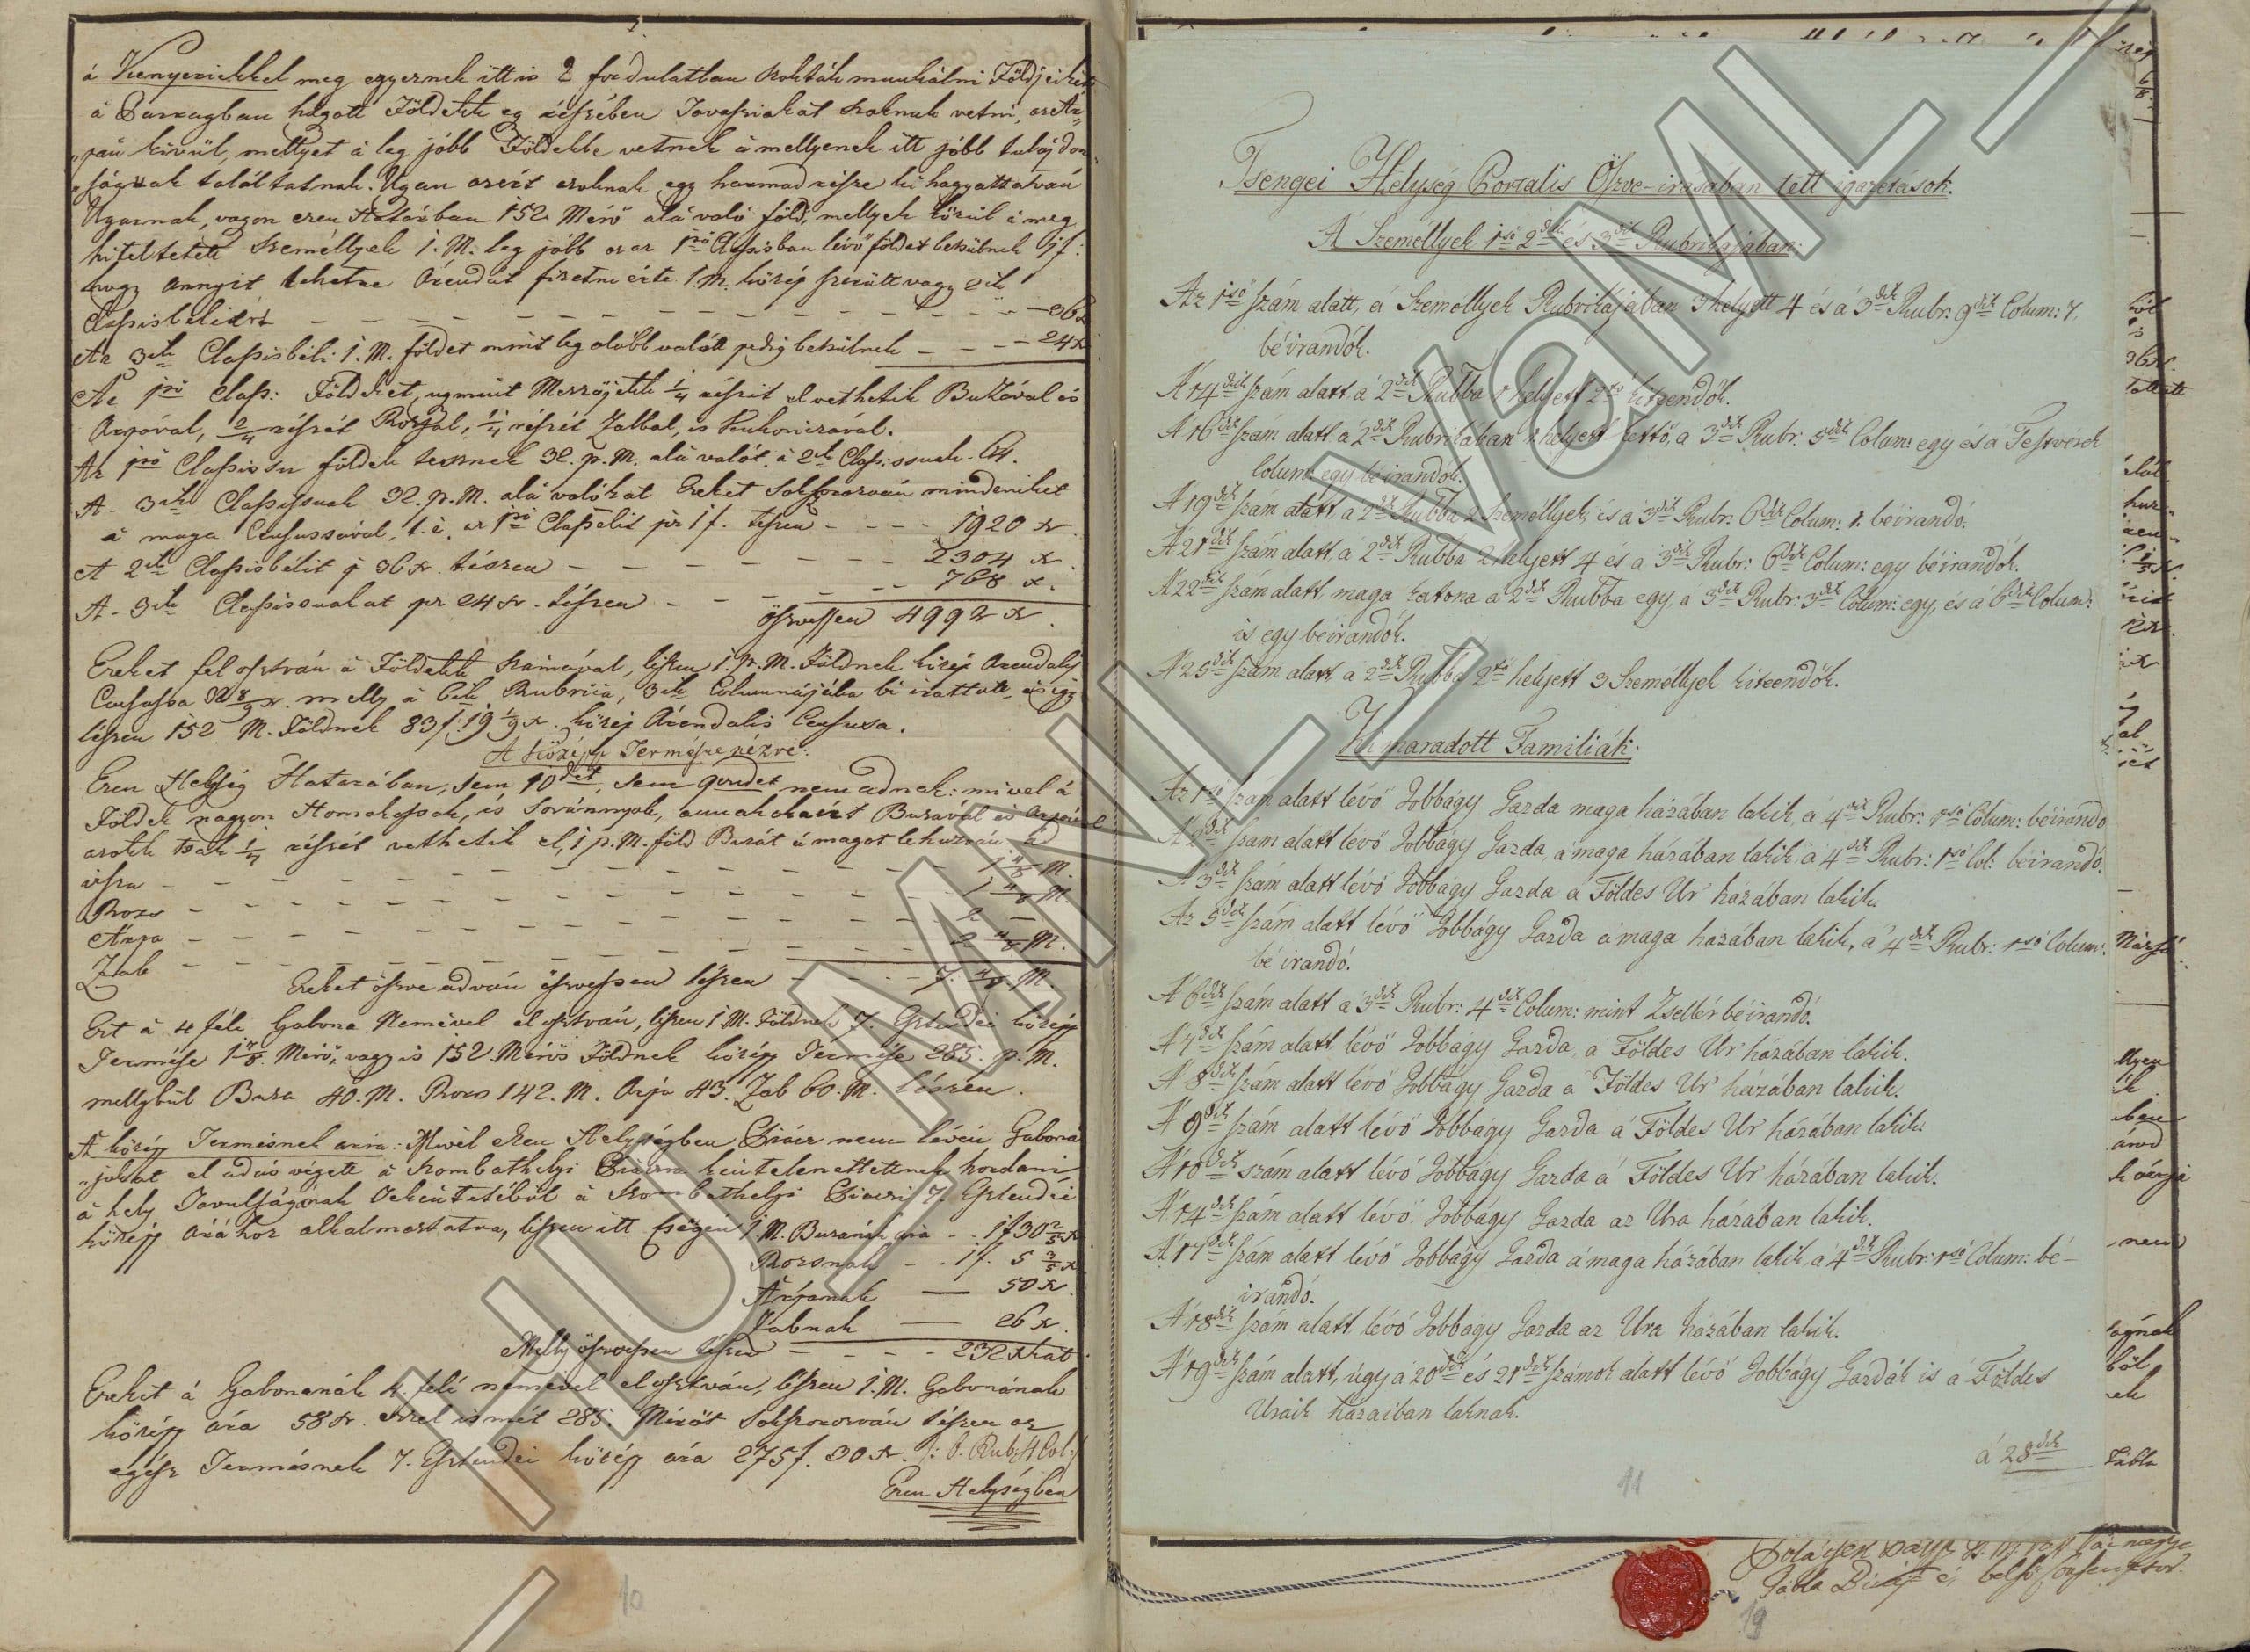 á Kenyeriekkel meg egyeznek itt is 2 fordulatban szokták munkálni Földjeiket
á Parragban hagott Földek eg részében Tavasziakat szoknak vetni, az Ár-
„pán kivül, mellyet á leg jobb Földekbe vetnek á mellyenek itt jóbb tulajdon
„ságuak találtatnak. Ugan azért azoknak egy harmad része ki hagyattatván
Ugarnak, vagon ezen Határban 152 Mérő alá való föld, mellyek közül á meg
hiteltetett Személlyek 1. M. leg jobb az az 1ső Classisban lévő földet betsülnek 1 f:
hogy annyit lehetne Árendát fizetni érte. 1. M. közép szerűtt vagy 2ik
Classisbéliért – – – 36 x
Az 3ik Classisbéli 1. M. földet mint leg alább valótt pedig betsülnek – – – 24 x
Az 1ső Class: Földeket, ugymint Mezőjek 1/4 részit el vethetik Buzával és
Árpával, 2/4 részét Rozsal, 1/4 részét Zabbal, és Kukoriczával.
Az 1ső Classisu földek tesznek 32. p. M. alá valót. á 2ik Classisuak 64.
A 3ik Classisuak 32. p. M. alá valókat Ezeket Sokszorozván mindeniket
á maga Censussával, t. i. az 1ső Classebelit pr 1 f. tészen – – – 1920 x
A 2ik Classisbélit p 36 x. tészen – – – 2304 x
A 3ik Classisuakat pr 24 xr. tészen – – – 768 x.
öszvessen 4992 x.
Ezeket fel osztván á Földek számával, lészen 1. p. M. Földnek közép Árendális
Censussa 32 8/9 x. melly á 6ik Rubrica, 3ik Columnájába bé irattatt, és igy
lészen 152 M. Földnek 83 f. 19 1/9 x. közép Árendalis Censusa.
A Középp Termésre nézve:
Ezen Helység Határában, sem 10det, sem 9cedet nem adnak: mivel á
Földek nagyon Homokossak, és Soványnyak, annakokáért Buzával és Árpával
azok tsak 1/4 részét vethetik el, 1 p. M. föld Buzát á magot lehuzván ád
vissza – – – 1 4/8 M.
Rozs – – – 1 4/8 M.
Árpa – – – 2 –
Zab – – – 2 4/8 M.
Ezeket öszve adván öszvessen lészen – – – 7. 4/8 M.
Ezt á 4 féle Gabona Nemével el osztván, lészen 1. M. Földnek 7. Esztendei középp
Termése 1 7/8. Mérő, vagy is 152 Mérős Földnek középp Termése 285. p. M.
mellybül Buza 40. M. Rozs 142. M. Árpa 43. Zab 60. M. lészen.
A középp Termésnek ára: Mivel ezen Helységben Piácz nem lévén Gaboná
„jokat el adás végett á Szombathelyi Piáczra kéntelenéttetnek hordani
á hely Távulságának tekéntetébül á Szombathelyi Piaczi 7. Esztendei
középp árához alkalmaztatva, lészen itt Csöngén 1. M. Buzának ára – 1 f 30 2/5 x
Rozsnak – 1 f. 5 3/5 x
Árpának – 50 x.
Zabnak – 26 x.
Melly öszvessen tészen – – – 232 x kat
Ezekit á Gabonának 4. féle nemével el osztván, lészen 1. M. Gabonának
középp ára 58 xr. Ezzel ismét 285. Mérőt Sokszorozván tészen az
egész Termésnek 7. Esztendei középp ára 275 f. 30 x. /: 6. Rub: 4 Col:/
Ezen Helységben
10
Tsengei Helység Portalis Öszve-irásában tett igazitások.
A' Személlyek 1ső 2dik és 3dik Rubrikajában:
Az 1ső szám alatt, a' Szemellyek Rubrikájában 3 helyett 4 és a' 3dik Rubr: 9dik Colum: 7.
béirandók.
A' 14dik szám alatt, a' 2dik Rubba 1 helyett 2tő kitzendők.
A' 16dik szám alatt a' 2dik Rubrikában 1 helyett kettő, a' 3dik Rubr: 5dik Colum: egy és a' Testverek
Colum: egy béirandók.
A' 19dik szám alatt, a' 2dik Rubba 2 Szemellyek, és a' 3dik Rubr: 6dik Colum: 1. béirandó.
A' 21dik szám alatt, a' 2dik Rubba 2 helyett 4 és a' 3dik Rubr: 6dik Colum: egy béirandók.
A' 22dik szám alatt, maga katona a' 2dik Rubba egy, a' 3dik Rubr: 3dik Colum: egy, és a' 6dik Colum:
is egy béirandók.
A' 25dik szám alatt a' 2dik Rubba 2tő helyett 3 Személlyek kiteendők.
Kimaradott Familiák:
Az 1ső szám alatt lévő Jobbágy Gazda maga házában lakik, a' 4dik Rubr: 1ső Colum: béirandó
A' 2dik szám alatt lévő Jobbágy Gazda, a' maga házában lakik, a' 4dik Rubr: 1ső Col: béirandó.
A' 3dik szám alatt lévő Jobbágy Gazda a' Földes Ur házában lakik.
Az 5dik szám alatt lévő Jobbágy Gazda a' maga házában lakik, a' 4dik Rubr: 1ső Colum:
bé irandó.
A' 6dik szám alatt a' 3dik Rubr: 4dik Colum: mint Zsellér béirandó.
A' 7dik szám alatt, lévő Jobbágy Gazda, a' Földes Ur házában lakik.
A' 8dik szám alatt lévő Jobbágy Gazda a' Földes Ur házában lakik.
A' 9dik szám alatt lévő Jobbágy Gazda a' Földes Ur házában lakik.
A' 10dik szám alatt lévő Jobbágy Gazda a' Földes Ur házában lakik.
A' 14dik szám alatt lévő Jobbágy Gazda az Ura házában lakik.
A' 17dik szám alatt lévő Jobbágy Gazda a' maga házában lakik, a' 4dik Rubr: 1ső Colum: bé-
irandó.
A' 18dik szám alatt lévő Jobbágy Gazda az Ura házában lakik.
A' 19dik szám alatt, úgy a' 20dik és 21dik számok alatt lévő Jobbágy Gazdák is a' Földes
Uraik házaiban laknak.
a' 23dik
11
Tábla
Tabla Birája és belső
19
HU MNL VaML